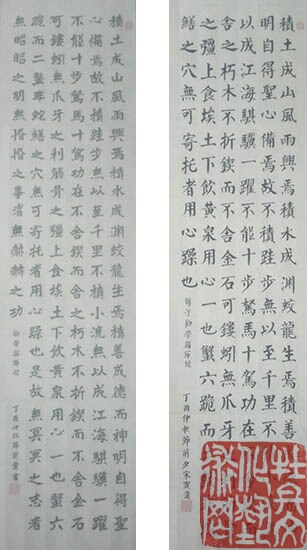 積土成山風雨興焉積水成淵蛟龍生焉積善
明自得聖心備焉故不積跬步無以至千里不
以成江海騏驥一躍不能十步駑馬十駕功在
舍之朽木不折鍥而不舍金石可鏤螾無爪牙
之彊上食埃土下飲黃泉用心一也蟹六跪而
鱔之穴無可寄託者用心躁也
荀子勸學篇節錄
丁酉仲秋節前夕宋寶貴
積土成山風雨興焉積水成淵蛟龍生焉積善成德而神明自得聖
心備焉故不積跬步無以至千里不積小流無以成江海騏驥一躍
不能十步駑馬十駕功在不舍鍥而舍之朽木不折鍥而不舍金石
可鏤螾無爪牙之利筋骨之彊上食埃土下飲黃泉用心一也蟹六
跪而二螯非蛇鱔之穴無可寄託者用心躁也是故無冥冥之志者
無昭昭之明無惛惛之事者無赫赫之功
勸學篇節錄
丁酉仲秋節寶貴書